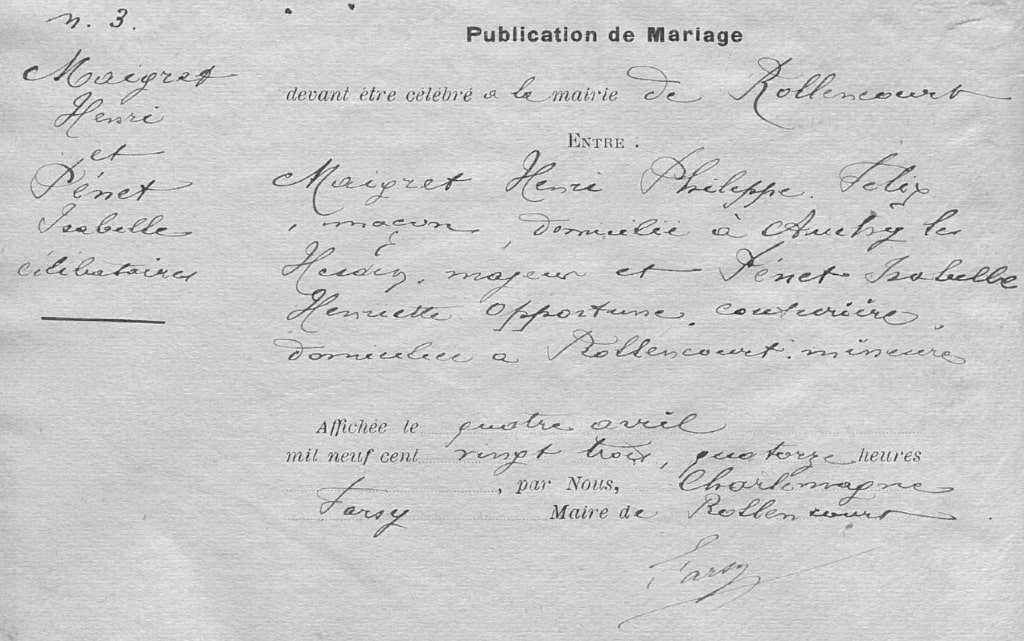 n. 3.
Maigret
Henri
et
Pénet
Isabelle
célibataires
Publication de Mariage
devant être célébré à la mairie de Rollencourt
ENTRE :
Maigret Henri Philippe Felix
, maçon, domicilié à Auchy les
Hesdin, majeur et Pénet Isabelle
Henriette Opportune, couturière,
domiciliée à Rollencourt, mineure
Affichée le quatre avril
mil neuf cent vingt trois, quatorze heures
, par Nous, Charlemagne
Farsy Maire de Rollencourt
Farsy